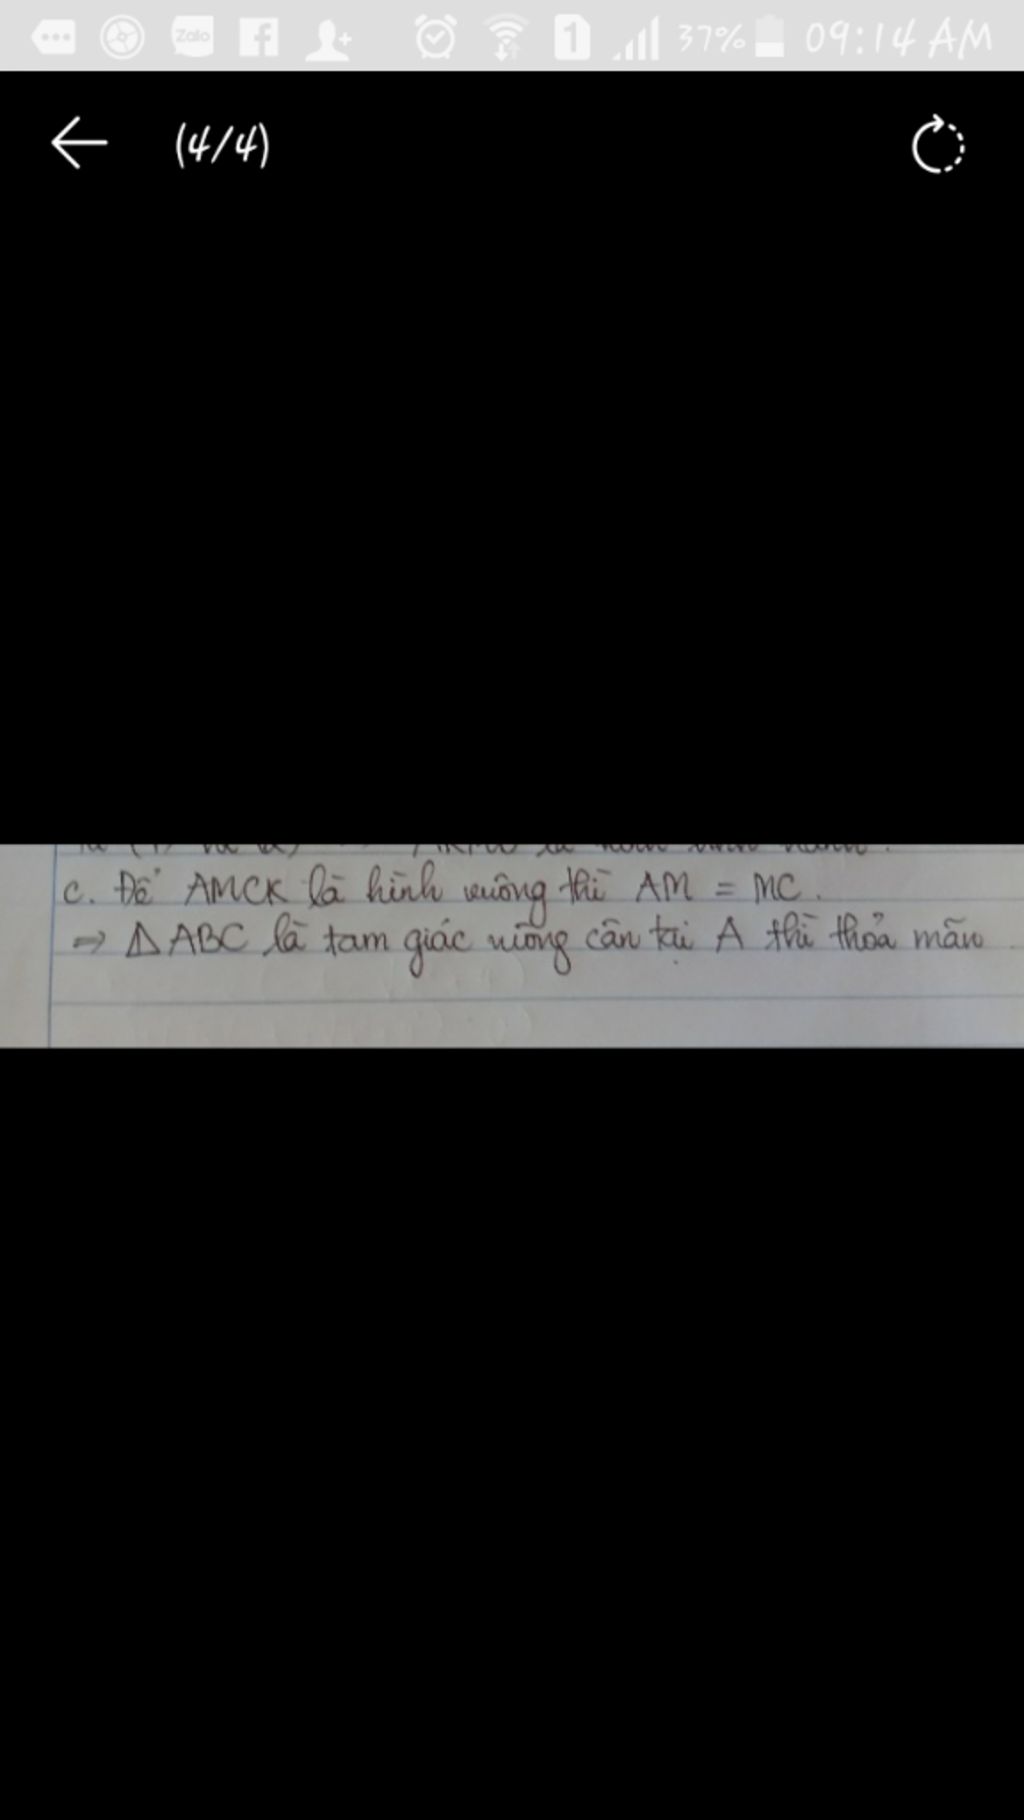 Zalo
1
37%
09:14 AM
(4/4)
c. Để AMCK là hình vuông thì AM = MC.
⇒ △ABC là tam giác vuông cân tại A thì thỏa mãn